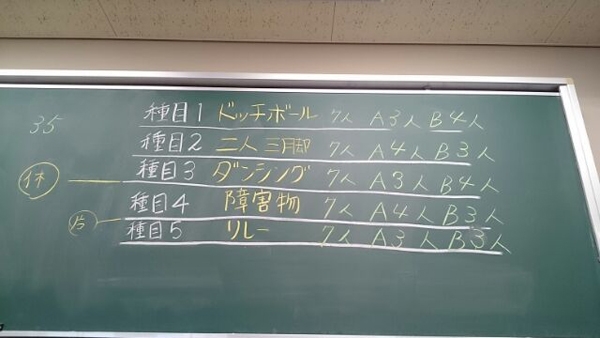 35
種目1 ドッチボール 7人 A3人 B4人
種目2 二人三脚 7人 A4人 B3人
休
種目3 ダンシング 7人 A3人 B4人
種目4 障害物 7人 A4人 B3人
種目5 リレー 7人 A3人 B3人